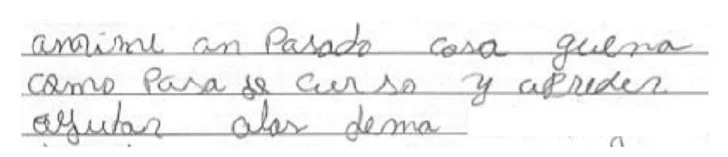 amime an Pasado cosa guena
como Para de curso y apreder
ayutar alos dema